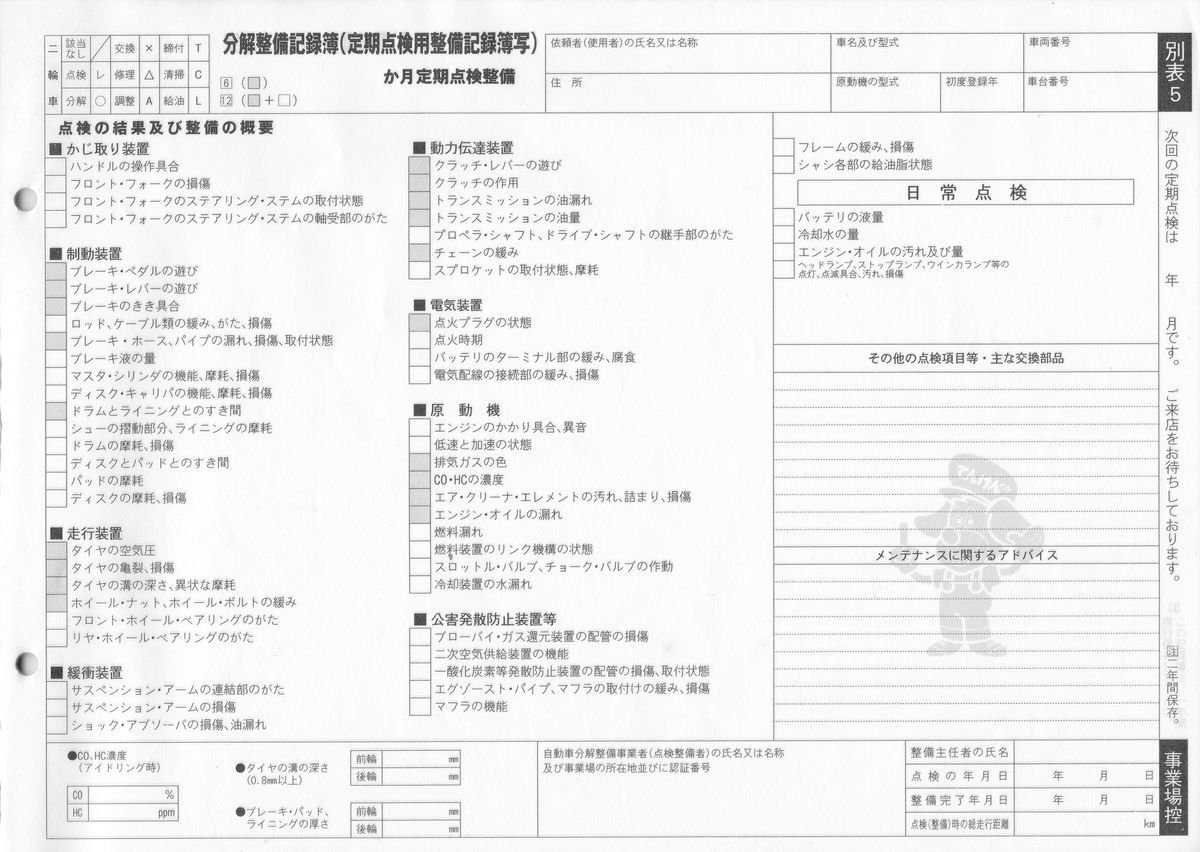 二輪車
該当なし ／ 交換 × 締付 T
点検 レ 修理 △ 清掃 C
分解 ○ 調整 A 給油 L
分解整備記録簿(定期点検用整備記録簿写)
か月定期点検整備
6 (□)
12 (□+□)
依頼者(使用者)の氏名又は名称
住 所
車名及び型式
車両番号
原動機の型式
初度登録年
車台番号
別表5
点検の結果及び整備の概要
■かじ取り装置
ハンドルの操作具合
フロント・フォークの損傷
フロント・フォークのステアリング・ステムの取付状態
フロント・フォークのステアリング・ステムの軸受部のがた
■制動装置
ブレーキ・ペダルの遊び
ブレーキ・レバーの遊び
ブレーキのきき具合
ロッド、ケーブル類の緩み、がた、損傷
ブレーキ・ホース、パイプの漏れ、損傷、取付状態
ブレーキ液の量
マスタ・シリンダの機能、摩耗、損傷
ディスク・キャリパの機能、摩耗、損傷
ドラムとライニングとのすき間
シューの摺動部分、ライニングの摩耗
ドラムの摩耗、損傷
ディスクとパッドとのすき間
パッドの摩耗
ディスクの摩耗、損傷
■走行装置
タイヤの空気圧
タイヤの亀裂、損傷
タイヤの溝の深さ、異状な摩耗
ホイール・ナット、ホイール・ボルトの緩み
フロント・ホイール・ベアリングのがた
リヤ・ホイール・ベアリングのがた
■緩衝装置
サスペンション・アームの連結部のがた
サスペンション・アームの損傷
ショック・アブソーバの損傷、油漏れ
■動力伝達装置
クラッチ・レバーの遊び
クラッチの作用
トランスミッションの油漏れ
トランスミッションの油量
プロペラ・シャフト、ドライブ・シャフトの継手部のがた
チェーンの緩み
スプロケットの取付状態、摩耗
■電気装置
点火プラグの状態
点火時期
バッテリのターミナル部の緩み、腐食
電気配線の接続部の緩み、損傷
■原 動 機
エンジンのかかり具合、異音
低速と加速の状態
排気ガスの色
CO・HCの濃度
エア・クリーナ・エレメントの汚れ、詰まり、損傷
エンジン・オイルの漏れ
燃料漏れ
燃料装置のリンク機構の状態
スロットル・バルブ、チョーク・バルブの作動
冷却装置の水漏れ
■公害発散防止装置等
ブローバイ・ガス還元装置の配管の損傷
二次空気供給装置の機能
一酸化炭素等発散防止装置の配管の損傷、取付状態
エグゾースト・パイプ、マフラの取付けの緩み、損傷
マフラの機能
フレームの緩み、損傷
シャシ各部の給油脂状態
日 常 点 検
バッテリの液量
冷却水の量
エンジン・オイルの汚れ及び量
ヘッドランプ、ストップランプ、ウインカランプ等の
点灯、点滅具合、汚れ、損傷
その他の点検項目等・主な交換部品
てんけんくん
メンテナンスに関するアドバイス
次回の定期点検は 年 月です。 ご来店をお待ちしております。
二年間保存。
事業場控
●CO、HC濃度
(アイドリング時)
CO %
HC ppm
●タイヤの溝の深さ
(0.8mm以上)
前輪 mm
後輪 mm
●ブレーキ・パッド、
ライニングの厚さ
前輪 mm
後輪 mm
自動車分解整備事業者(点検整備者)の氏名又は名称
及び事業場の所在地並びに認証番号
整備主任者の氏名
点検の年月日 年 月 日
整備完了年月日 年 月 日
点検(整備)時の総走行距離 km